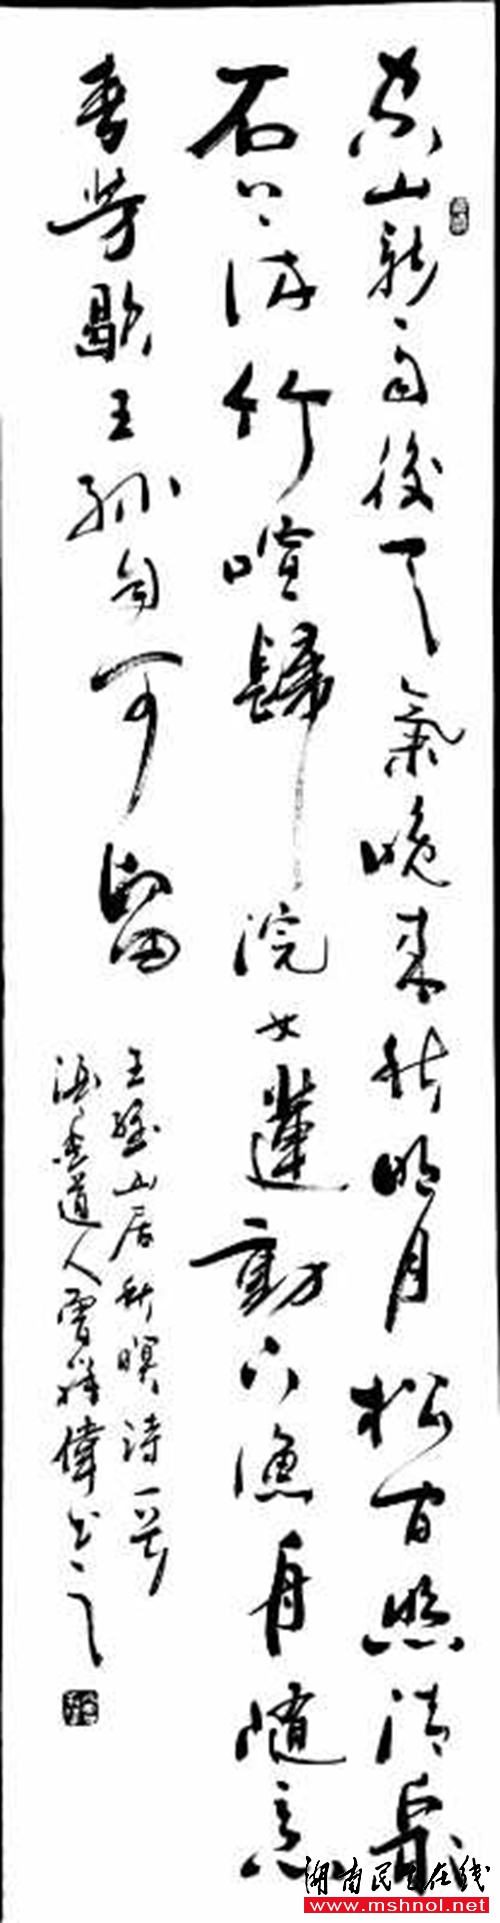 空山新雨後天氣晚來秋明月松間照清泉
石上流竹喧歸浣女蓮動下漁舟隨意
春芳歇王孫自可留
王維山居秋暝詩一首
道人曾祥偉書之
湖南民生在线
www.mshnol.net